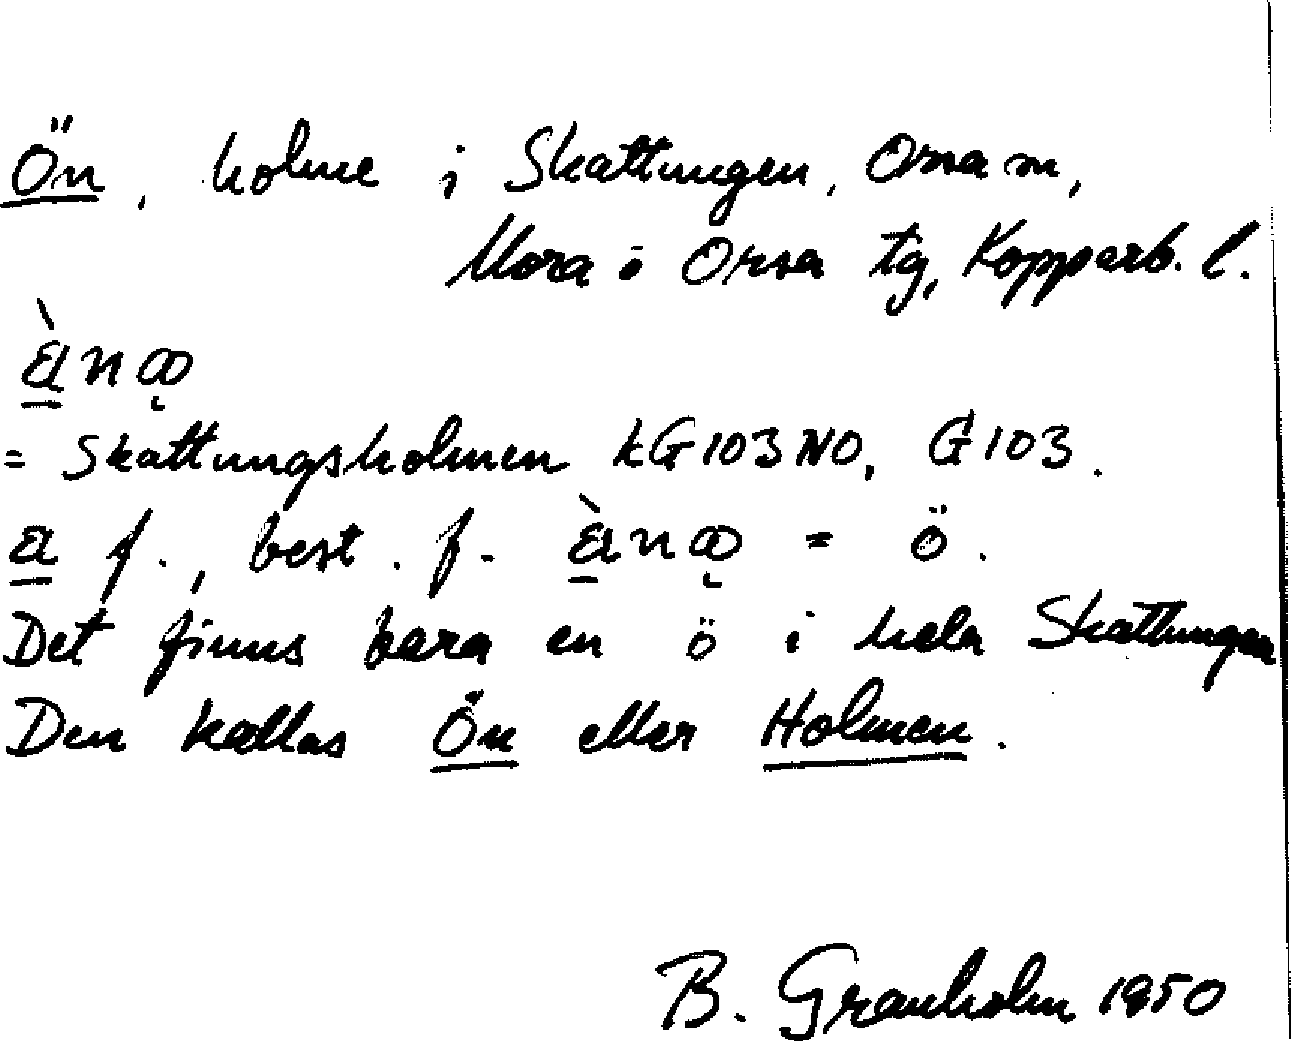 Ön, holme i Skattungen, Orsa sn,
Mora o Orsa tg, Kopparb. l.
= Skattungsholmen kG103NO, G103.
f., best. f. = ö.
Det finns bara en ö i hela Skattungen
Den kallas Ön eller Holmen.
B. Granholm 1950